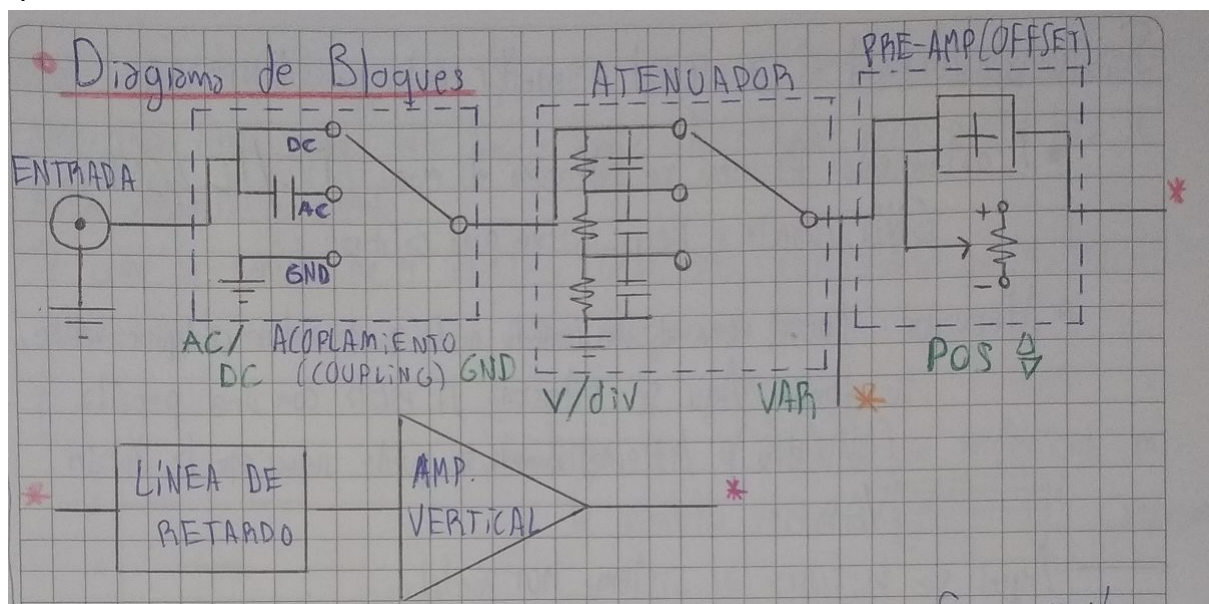 * Diagrama de Bloques
ATENUADOR
PRE-AMP(OFFSET)
ENTRADA
DC
AC
GND
+
+
-
AC/ ACOPLAMiENTO
DC (COUPLiNG) GND
V/div
VAR *
POS
*
* LíNEA DE
RETARDO
AMP.
VERTiCAL
*